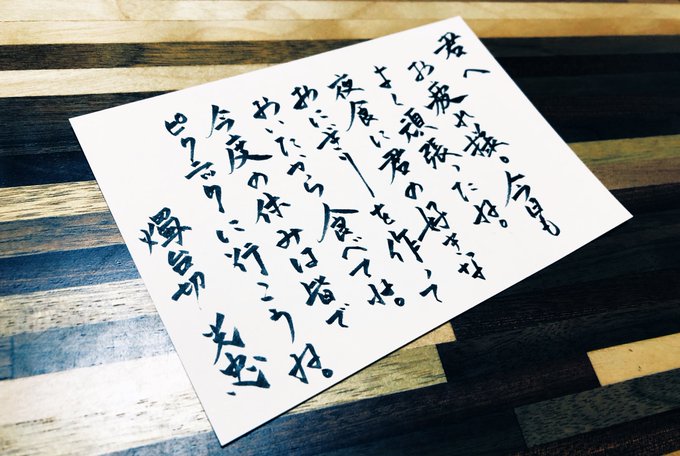 君へ
お疲れ様。今日も
よく頑張ったね。
夜食に君の好きな
おにぎりを作って
おいたから食べてね。
今度の休みは皆で
ピクニックに行こうね。
燭台切 光忠